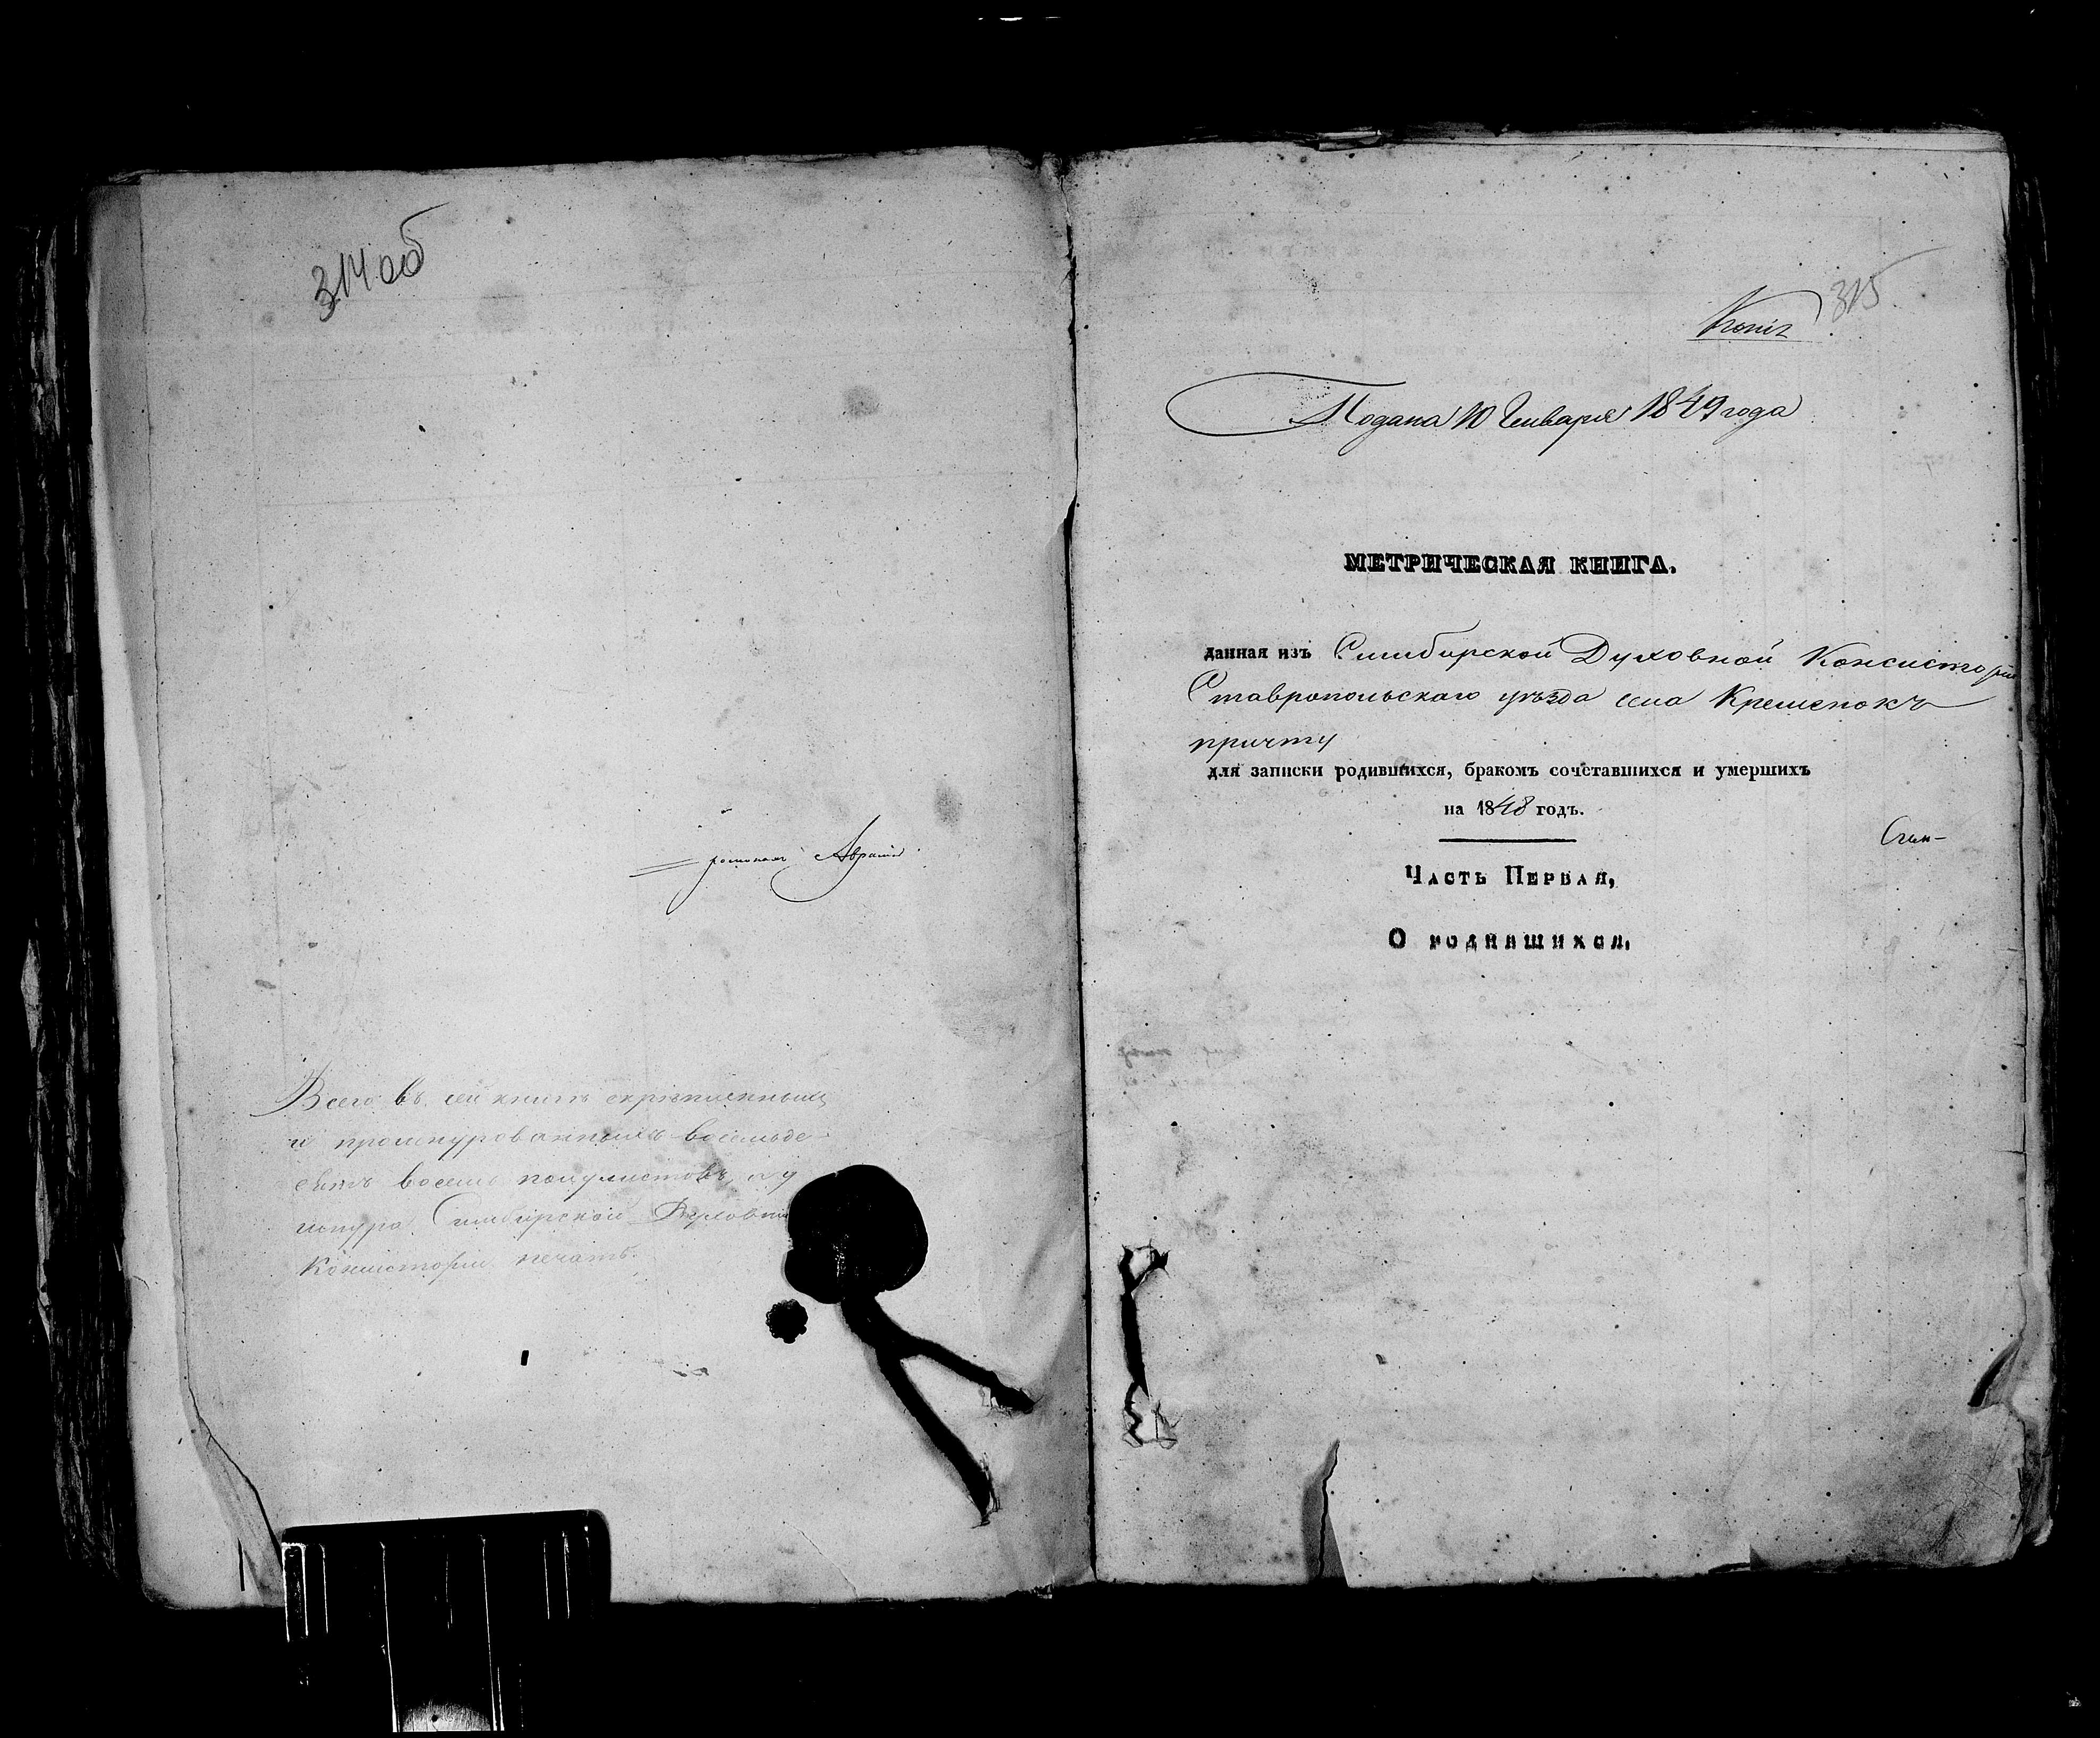 314 об
Аврамı
Всего въ сей книгѣ скрѣпленныхъ
и прошнурованныхъ восемьде-
сятъ восемь полулистовъ, а у
шнура Симбирской Духовной
Консисторіи печать.
315
Копія
Подана 10 Генваря 1849 года
МЕТРИЧЕСКАЯ КНИГА.
данная изъ Симбирской Духовной Консисторіи
Ставропольскаго уѣзда села Кременокъ
причту
для записки родившихся, бракомъ сочетавшихся и умершихъ
на 1848 годъ.
Сим-
Часть Первая,
О родившихся.